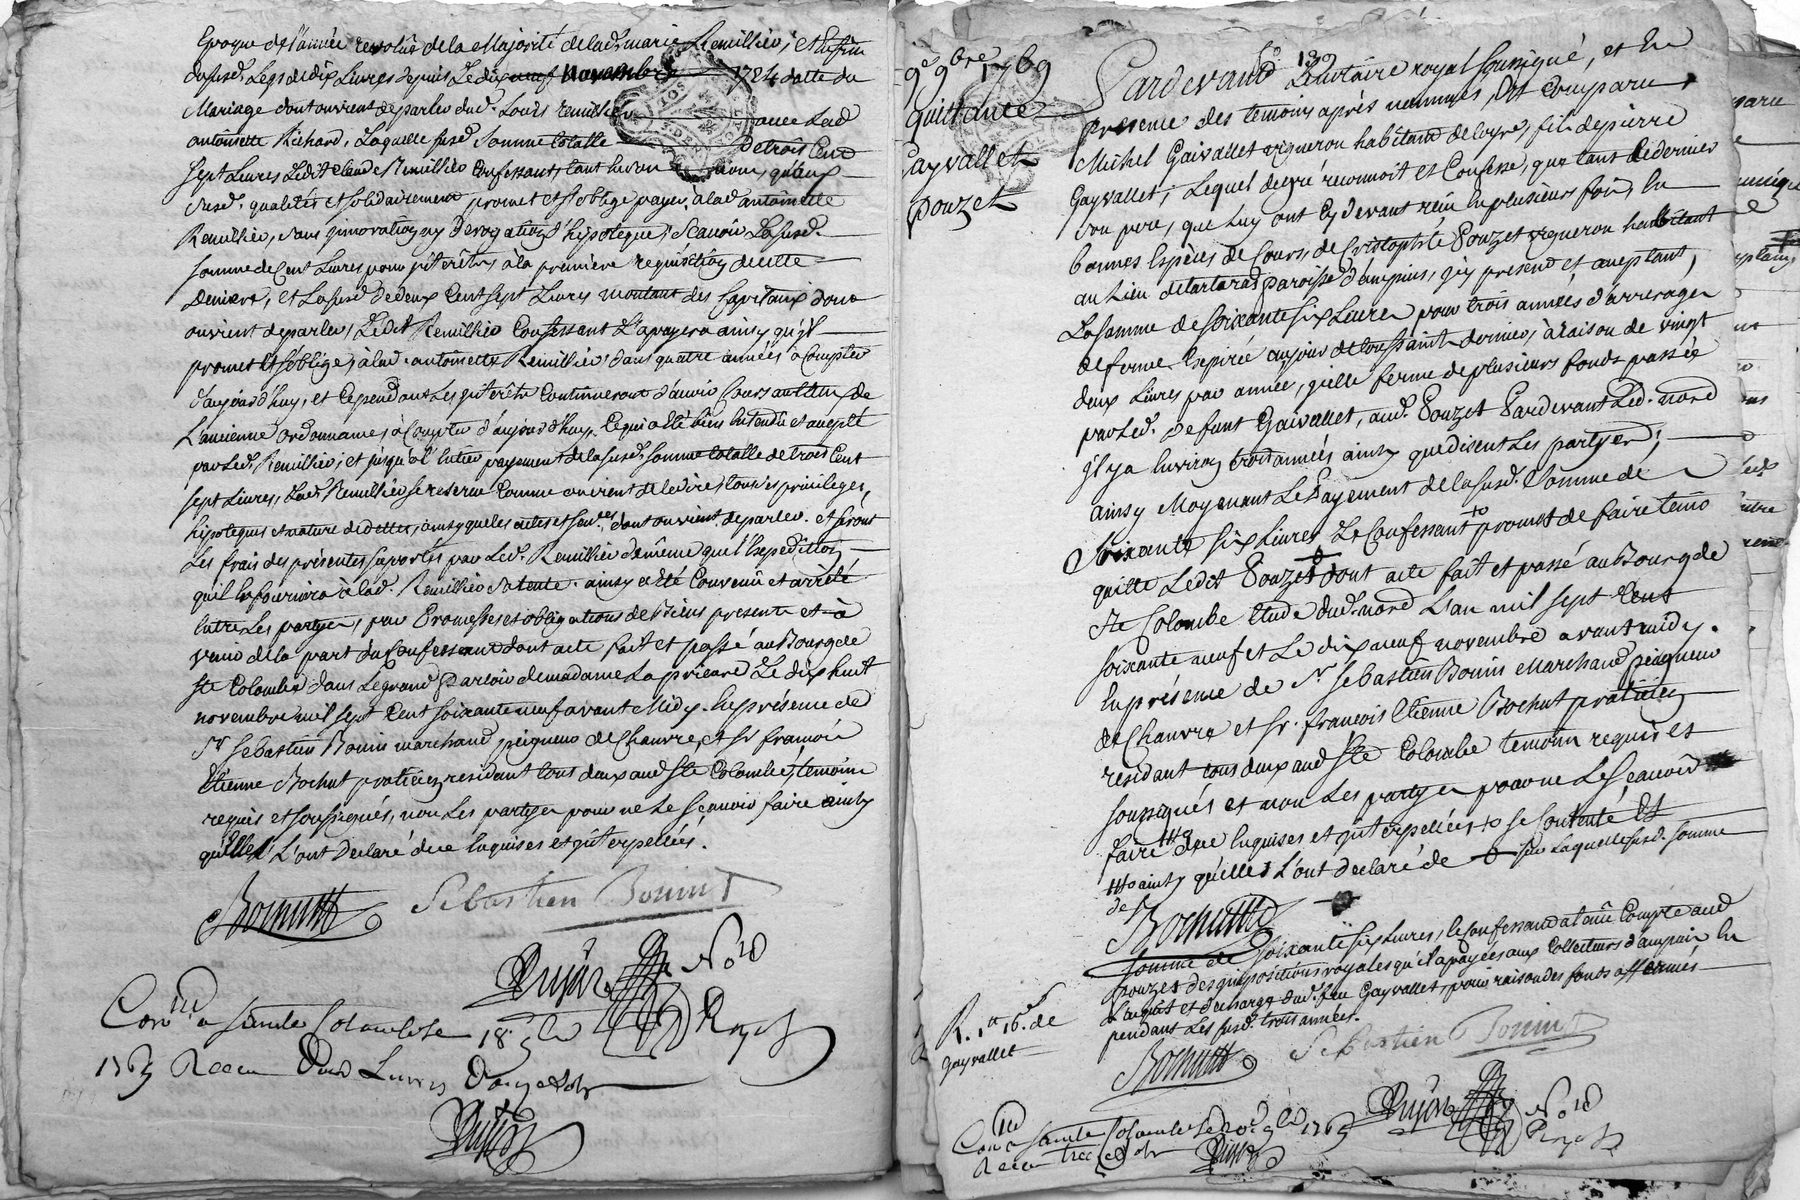 Epoque de l'année revolüe de la Majorité de lad. marie Remillieu, et la fin
dused. Legs de dix Livres depuis Le dix neuf Novembre 1724 datte du
Mariage dont ouvient de parler dud. Louis remillieu avec Lad
antoinette Richard, Laquelle susd. Somme totalle de trois Cent
sept Livres Ledit claude Remillieu Confessant, tant en son nom, qu'aux
susd. qualités et solidairement promet et s'oblige payer, à lad antoinette
Remillieu, sans jnnovation ny Derogation d'hipoteque, Scauoir La susd.
somme de Cent Livres pour jnterêts à la première requisition de cette
derniere, et La susd. de deux Cent sept Livres montant des Capitaux dont
ouvient de parler, Ledit Remillieu Confessant L'a payera ainsy qu'il
promet et s'oblige, à lad. antoinette Remillieu, dans quatre années à Compter
d'aujourd'huy, et Cependant Les jnterêts Continueront d'avoir Cours au taux de
L'ancienne ordonnance, à Compter d'aujourd'huy, Ce qui a été bien Entendu et accepté
par Led. Remillieu; et jusqu'à l'Entier payement de la susd. somme totalle de trois Cent
sept Livres, Lad. Remillieu se reserve Comme on vient de le dire, tous ses privileges,
hipoteques et nature de dettes, ainsy que les actes et sen.ces dont ouvient de parler. et seront
Les frais des présentes suportés par Led. Remillieu de même que l'Expedition
qu'il En fournira à lad. Remillieu sa tente. ainsy a été Convenû et arrêté
Entre Les partyes, par Promesses et obligations de Biens presents et à
venir de la part du Confessant dont acte fait et passé au Bourg de
Ste Colombe dans Le grand Parloir de madame La prieure Le dix huit
novembre mil sept Cent soixante neuf avant Midy. En présence de
Sr. Sebastien Bonin marchand peigneur de Chanvre, et Sr françois
Etienne Bochut praticien residant tous deux aud Ste Colombe, temoins
requis et soussignés, non Les partyes pour ne Le sçauoir faire ainsy
qu'elles L'ont Declaré de ce Enquises et Interpellées.
Bochut Sebastien Bonin
Dujar Nore
Con.lle a sainte Colombe Le 18 9bre
1769 Receu
9e 9bre 1769
Quittance
Gayvallet
Pouzet
139
Pardevant Le Notaire royal soussigné, et En
presence des temoins après nommés, Est Comparu
Michel Gaivallet vigneron habitant de loyre, fils de pierre
Gayvallet, Lequel de gré reconnoit et Confesse, que tant Ce dernier
son pere, que Luy ont Cy devant reçû En plusieurs fois, En
bonnes Espèces de Cours, de Cristophle Pouzet vigneron habitant
au Lieu de tartaras paroisse d'ampuis, jcy present et acceptant,
La somme de soixante six Livres pour trois années d'arrerages
de ferme Expirée au jour de toussaint dernier, à raison de vingt
deux Livres par année, jcelle ferme de plusieurs fonds passée
par Led. defunt Gaivallet, aud. Pouzet Pardevant Led. nore
jl y a Environ trois années ainsy que disent Les partyes;
ainsy Moyenant Le Payement de la susd. Somme de
Soixante six Livres Le Confessant promet de faire tenir
quitte Ledit Pouzet dont acte fait et passé au Bourg de
Ste Colombe Etude dud. nore L'an mil sept Cent
soixante neuf et Le dix neuf novembre avant midy.
En présence de Sr Sebastien Bonin Marchand peigneur
de Chanvre et Sr. françois Etienne Bochut praticien
residant tous deux aud Ste Colombe temoins requis et
soussignés et non Les partyes pour ne Le Sçauoir
faire de ce Enquises et Interpellées se Contente Et
ainsy qu'elles L'ont déclaré de sur Laquelle susd. somme
Bochut
somme de soixante six Livres, Le Confessant a tenû Compte aud
pouzet des jmpositions royales qu'il a payées aux Collecteurs d'ampuis En
L'acquit et decharge dud. feu Gayvallet, pour raison des fonds affermés
pendant Les susd. trois années.
Bochut Sebastien Bonin
Dujar Nore
Gayvallet
Con.lle sainte Colombe Le 20e 9bre 1769